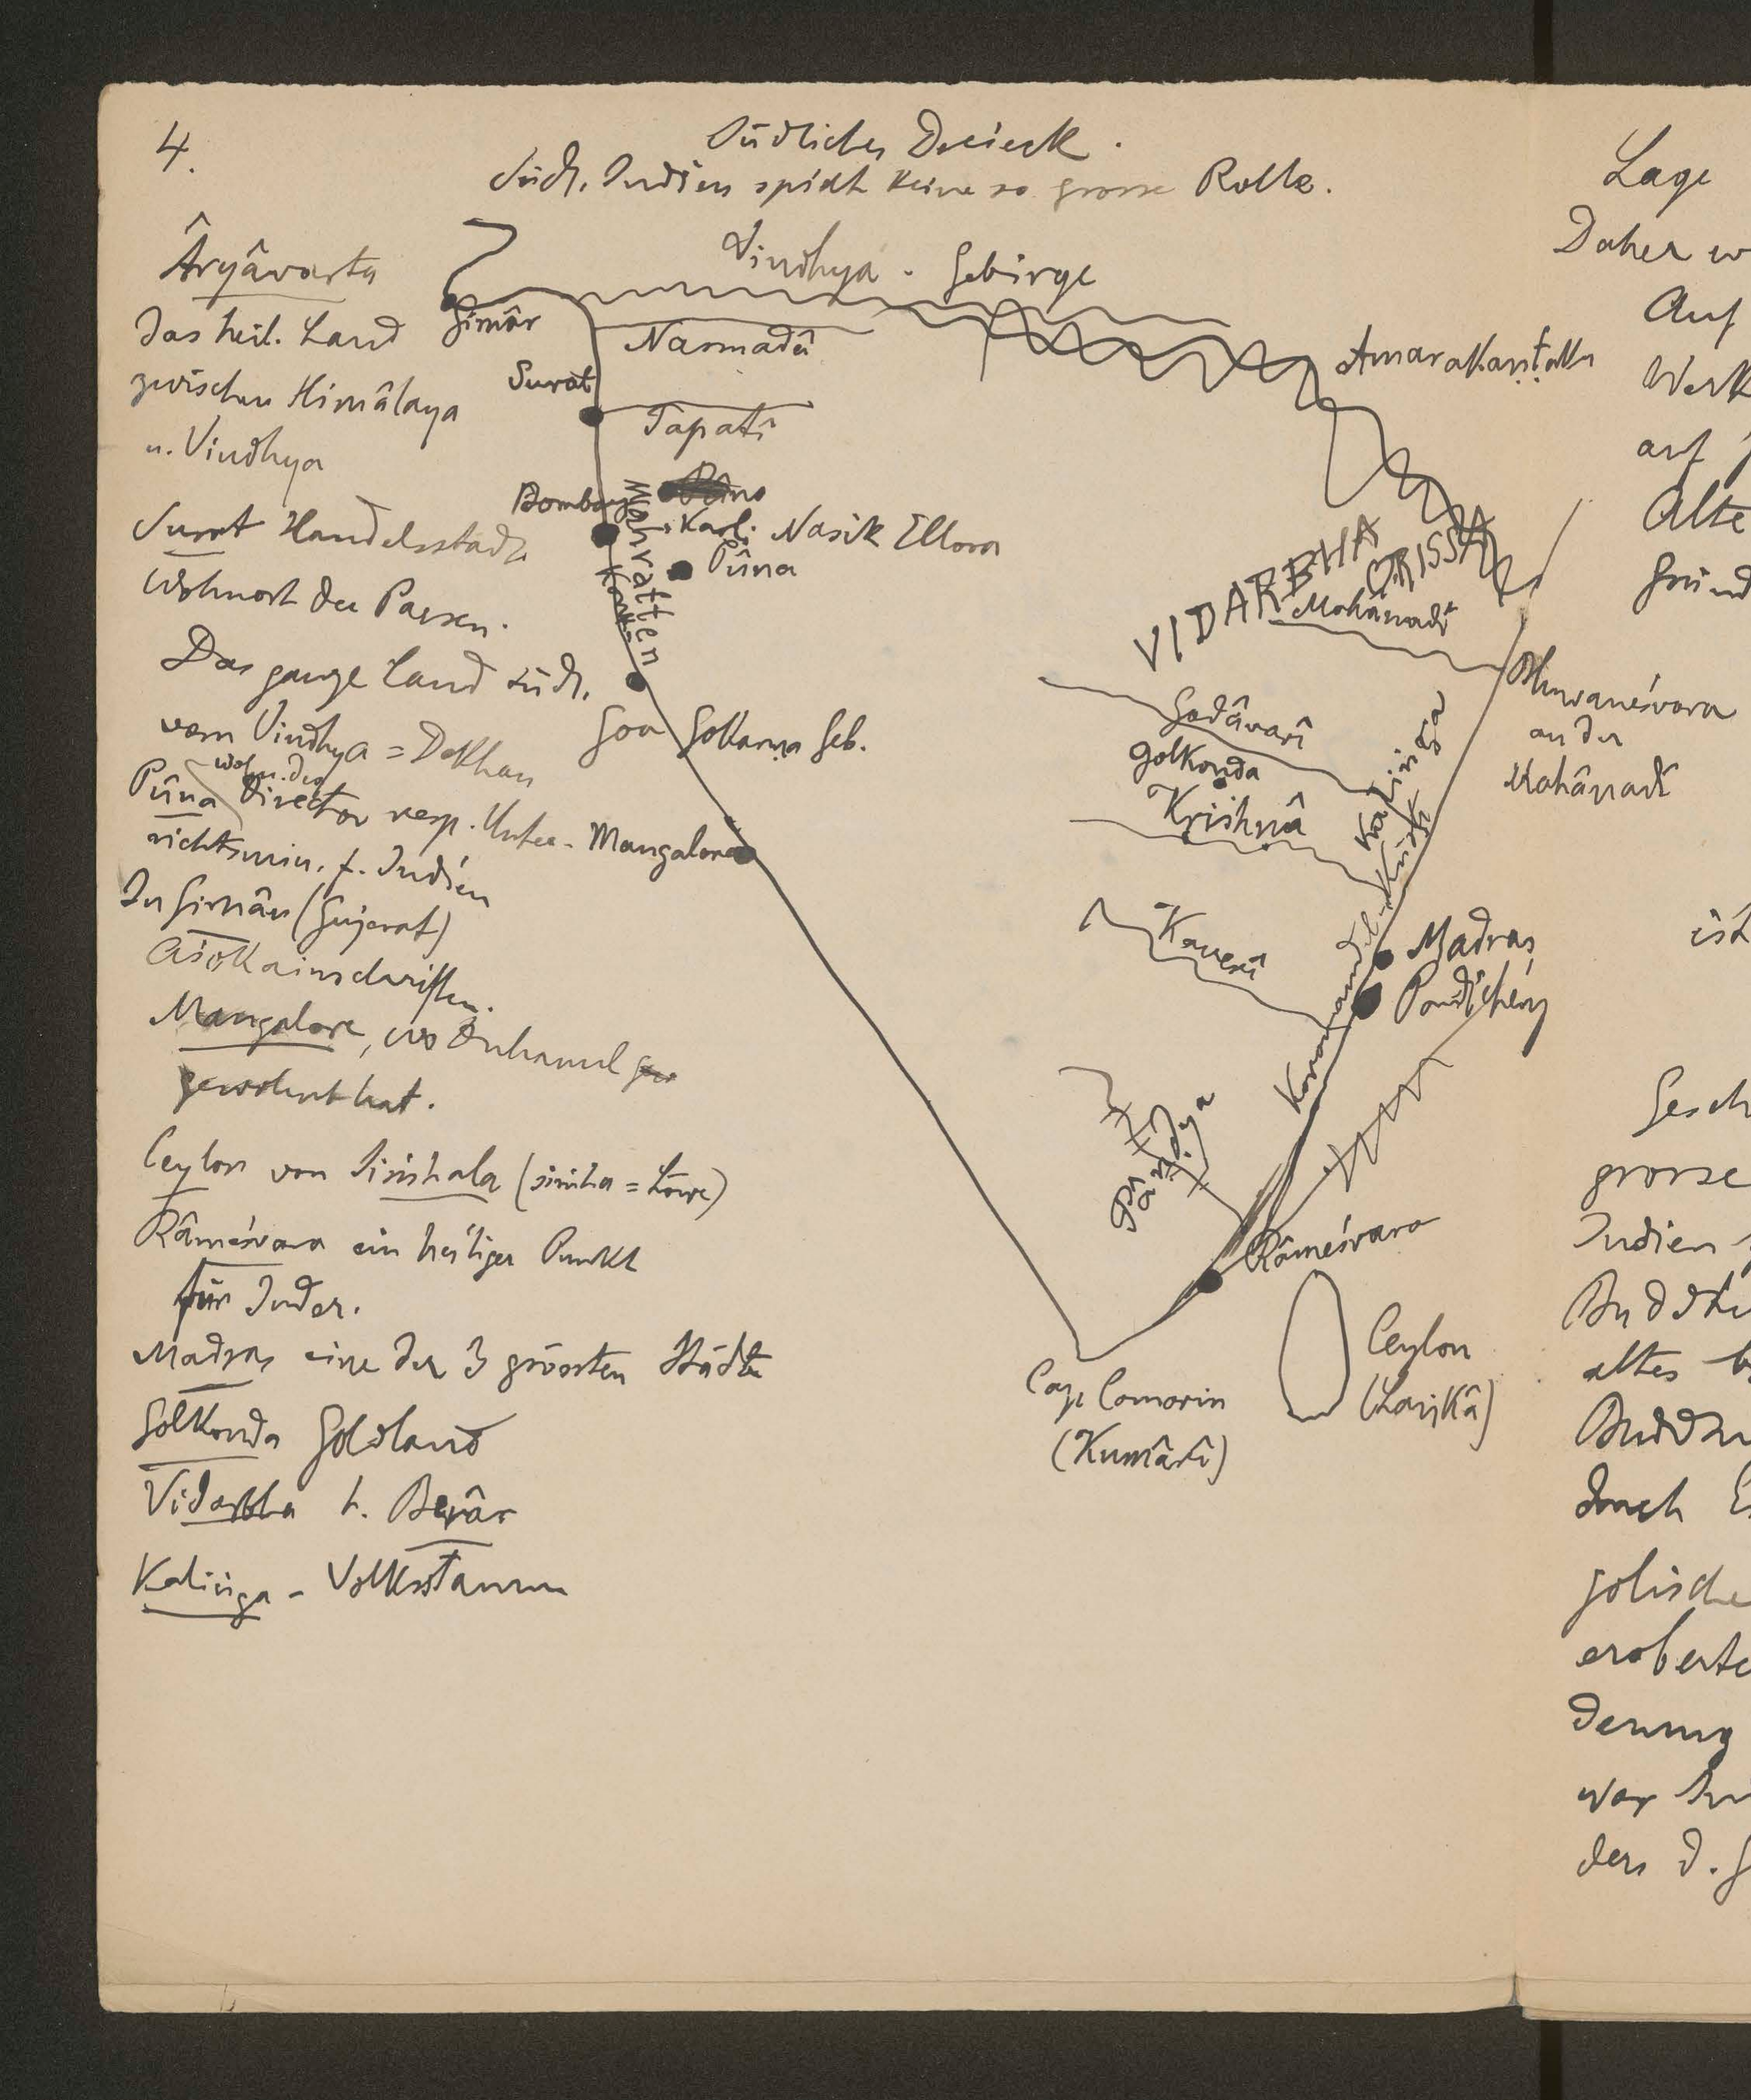 4.
Südliches Dreieck.
Südl. Indien spielt keine so grosse Rolle.
Âryâvarta
das heil. Land
zwischen Himâlaya
u. Vindhya
Surat Handelsstadt
Wohnort der Parsen.
Das ganze Land südl.
vom Vindhya = Dekhan
wohn. der
Pûna Director resp. Unter-
richtsmin. f. Indien
In Girnâr (Gujerat)
Aśokainschriften.
Mangalore, wo
gewohnt hat.
Ceylon von Siṁhala (siṁha = Löwe)
Râmeśvara ein heiliger Punkt
für Inder.
Madras eine der 3 grössten Städte
Golkonda Goldland
Vidarbha h. Berâr
Kaliṅga - Volksstamm
Vindhya - Gebirge
Girnâr
Narmadâ
Amarakaṇṭaka
Surat
Tapatî
Bombay
Karli Nasik Ellora
Pûna
Mahratten
Goa Gokarṇa Geb.
Mangalore
VIDARBHA
ORISSA
Mahânadî
Bhuvaneśvara
an der
Mahânadî
Godâvarî
Golkonda
Krishnâ
Kaliṅga
Koromandel-Küste
Kaverî
Madras
Pondichéry
Pâṇḍya
Râmeśvara
Ceylon
(Laṅkâ)
Cap Comorin
(Kumârî)
Lage
Daher w
Auf
Werk
auf
Alte
Gründ
ist
Gesch
grosse
Indien
Buddh
altes b
Buddh
durch E
golische
eroberte
derung
war
ders d. G